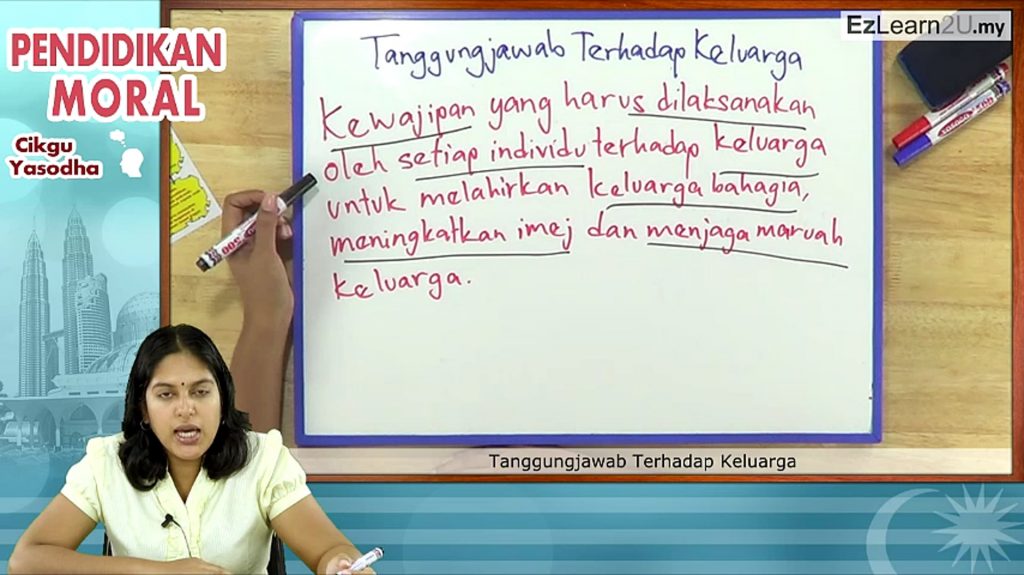 PENDIDIKAN
MORAL
Cikgu
Yasodha
EzLearn2U.my
Tanggungjawab Terhadap Keluarga
Kewajipan yang harus dilaksanakan
oleh setiap individu terhadap keluarga
untuk melahirkan keluarga bahagia,
meningkatkan imej dan menjaga maruah
keluarga.
Tanggungjawab Terhadap Keluarga